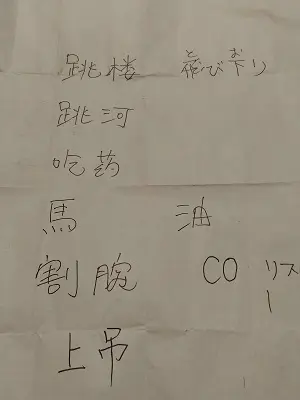 と お
跳楼 飛び下り
跳河
吃药
馬 油
割腕 CO リス
ー
上吊